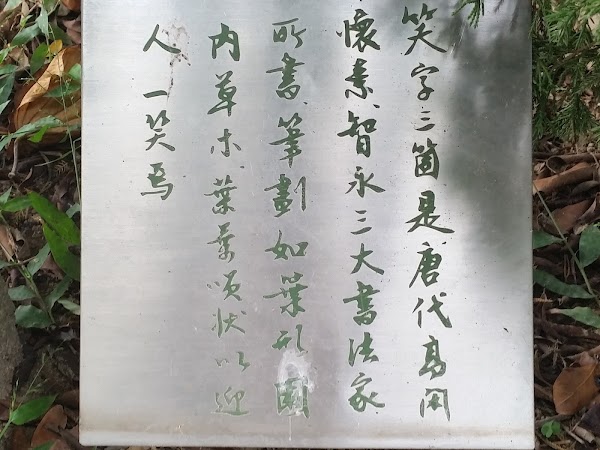 笑字三箇是唐代高閑
懷素、智永三大書法家
所書、筆劃如葉形園
內草木、葉葉頌狀以迎
人一笑焉